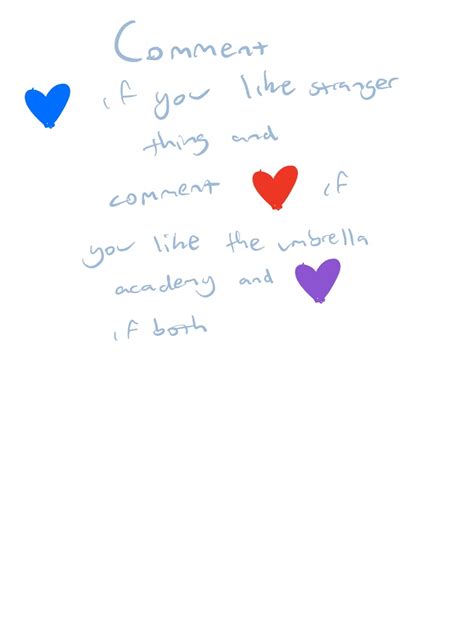 Comment
💙 if you like stranger
thing and
comment ❤️ if
you like the umbrella
academy and 💜
if both